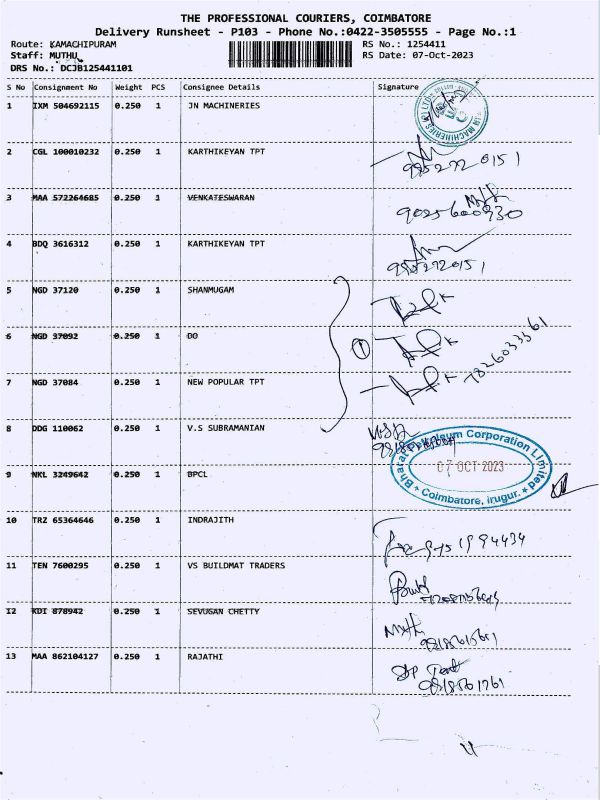 THE PROFESSIONAL COURIERS, COIMBATORE
Delivery Runsheet - P103 - Phone No.:0422-3505555 - Page No.:1
Route: KAMACHIPURAM RS No.: 1254411
Staff: MUTHU RS Date: 07-Oct-2023
DRS No.: DCJB125441101
S No Consignment No Weight PCS Consignee Details Signature
1 IXM 504692115 0.250 1 JN MACHINERIES
2 CGL 100010232 0.250 1 KARTHIKEYAN TPT
3 MAA 572264685 0.250 1 VENKATESWARAN
9025600930
4 BDQ 3616312 0.250 1 KARTHIKEYAN TPT
5 NGD 37120 0.250 1 SHANMUGAM
6 NGD 37092 0.250 1 DO
7 NGD 37084 0.250 1 NEW POPULAR TPT
7826033561
8 DDG 110062 0.250 1 V.S SUBRAMANIAN
Bharat Petroleum Corporation Limited
07 OCT 2023
Coimbatore, Irugur.
9 NKL 3249642 0.250 1 BPCL
10 TRZ 65364646 0.250 1 INDRAJITH
11 TEN 7600295 0.250 1 VS BUILDMAT TRADERS
12 KDI 878942 0.250 1 SEVUGAN CHETTY
13 MAA 862104127 0.250 1 RAJATHI